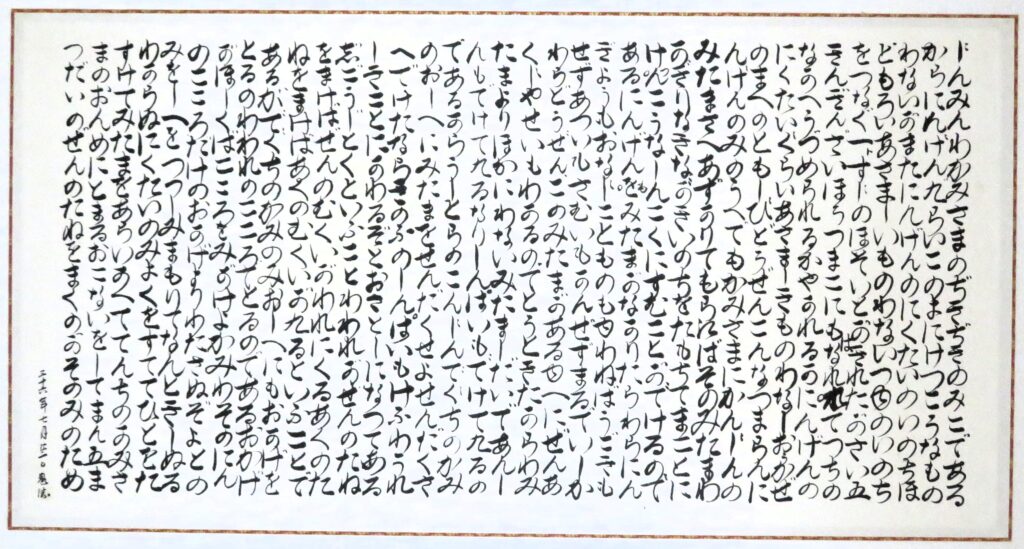 じんみんわかみさまのぢきぢきのみこである
からにんげん九らいこのよにけつこうなもの
わないがまたにんげんのにくたいのいのちほ
どもろいあさましいものわないつゆのいのち
をつなく一すじのほそいとがきれたがさい五
きんぎんざいほうつまこにもはなれてつちの
なかへうづめられるかやかれるかにんげんの
にくたいくらいあさましきものわなしおかぜ
のまへのともしびとうぜんこんなつまらんに
んげんのみのうへでもかみさまにかいしんの
みたまさへあずかりてもらへばそのみたまわ
かぎりなきながきいのちをたもちてまことに
けつこうなしんこくにすむことかでけるので
あるにんげんもみたまがなかりたらわらにん
ぎようもおなじことものもゆわねばうごきも
せずあついもさむいもかんぜすまるでいしか
わらとどうぜんこのみたまがあるゆへにぜんあ
くじやせいもわかるのでとうときたからわみ
たまよりほかにわないみたましだいであんし
んもでけて九るなりしんぱいもでけて九るの
であるからうしとらのこんじんでぐちのかみ
のおしへにみたまをせんだくせよせんだくさ
へでけたならきのふのしんぱいもけふわうれ
しきことにかわるぞとおさとしになつてある
志ごうじとくといふことわわれがぜんのたね
をまけばぜんのむくいがわれにくるあくのた
ねをまけばあくのむくいが九るといふことで
あるがでぐちのかみのみおしへにもおかげを
とるのわわれのこころでとるのであるおかげ
がほしくばこころをみがけよかみわそのにん
のこころだけのおかげよりわたさぬぞよとの
みをしへをつつしみまもりてなんどきしぬる
わからぬにくたいのみよくをすててひとをた
すけてみたまをあらいあへててんちのかみさ
まのおんめにとまるおこないをしてまん五ま
つだいのぜんのたねをまくのがそのみのため
三十六年一月廿一日